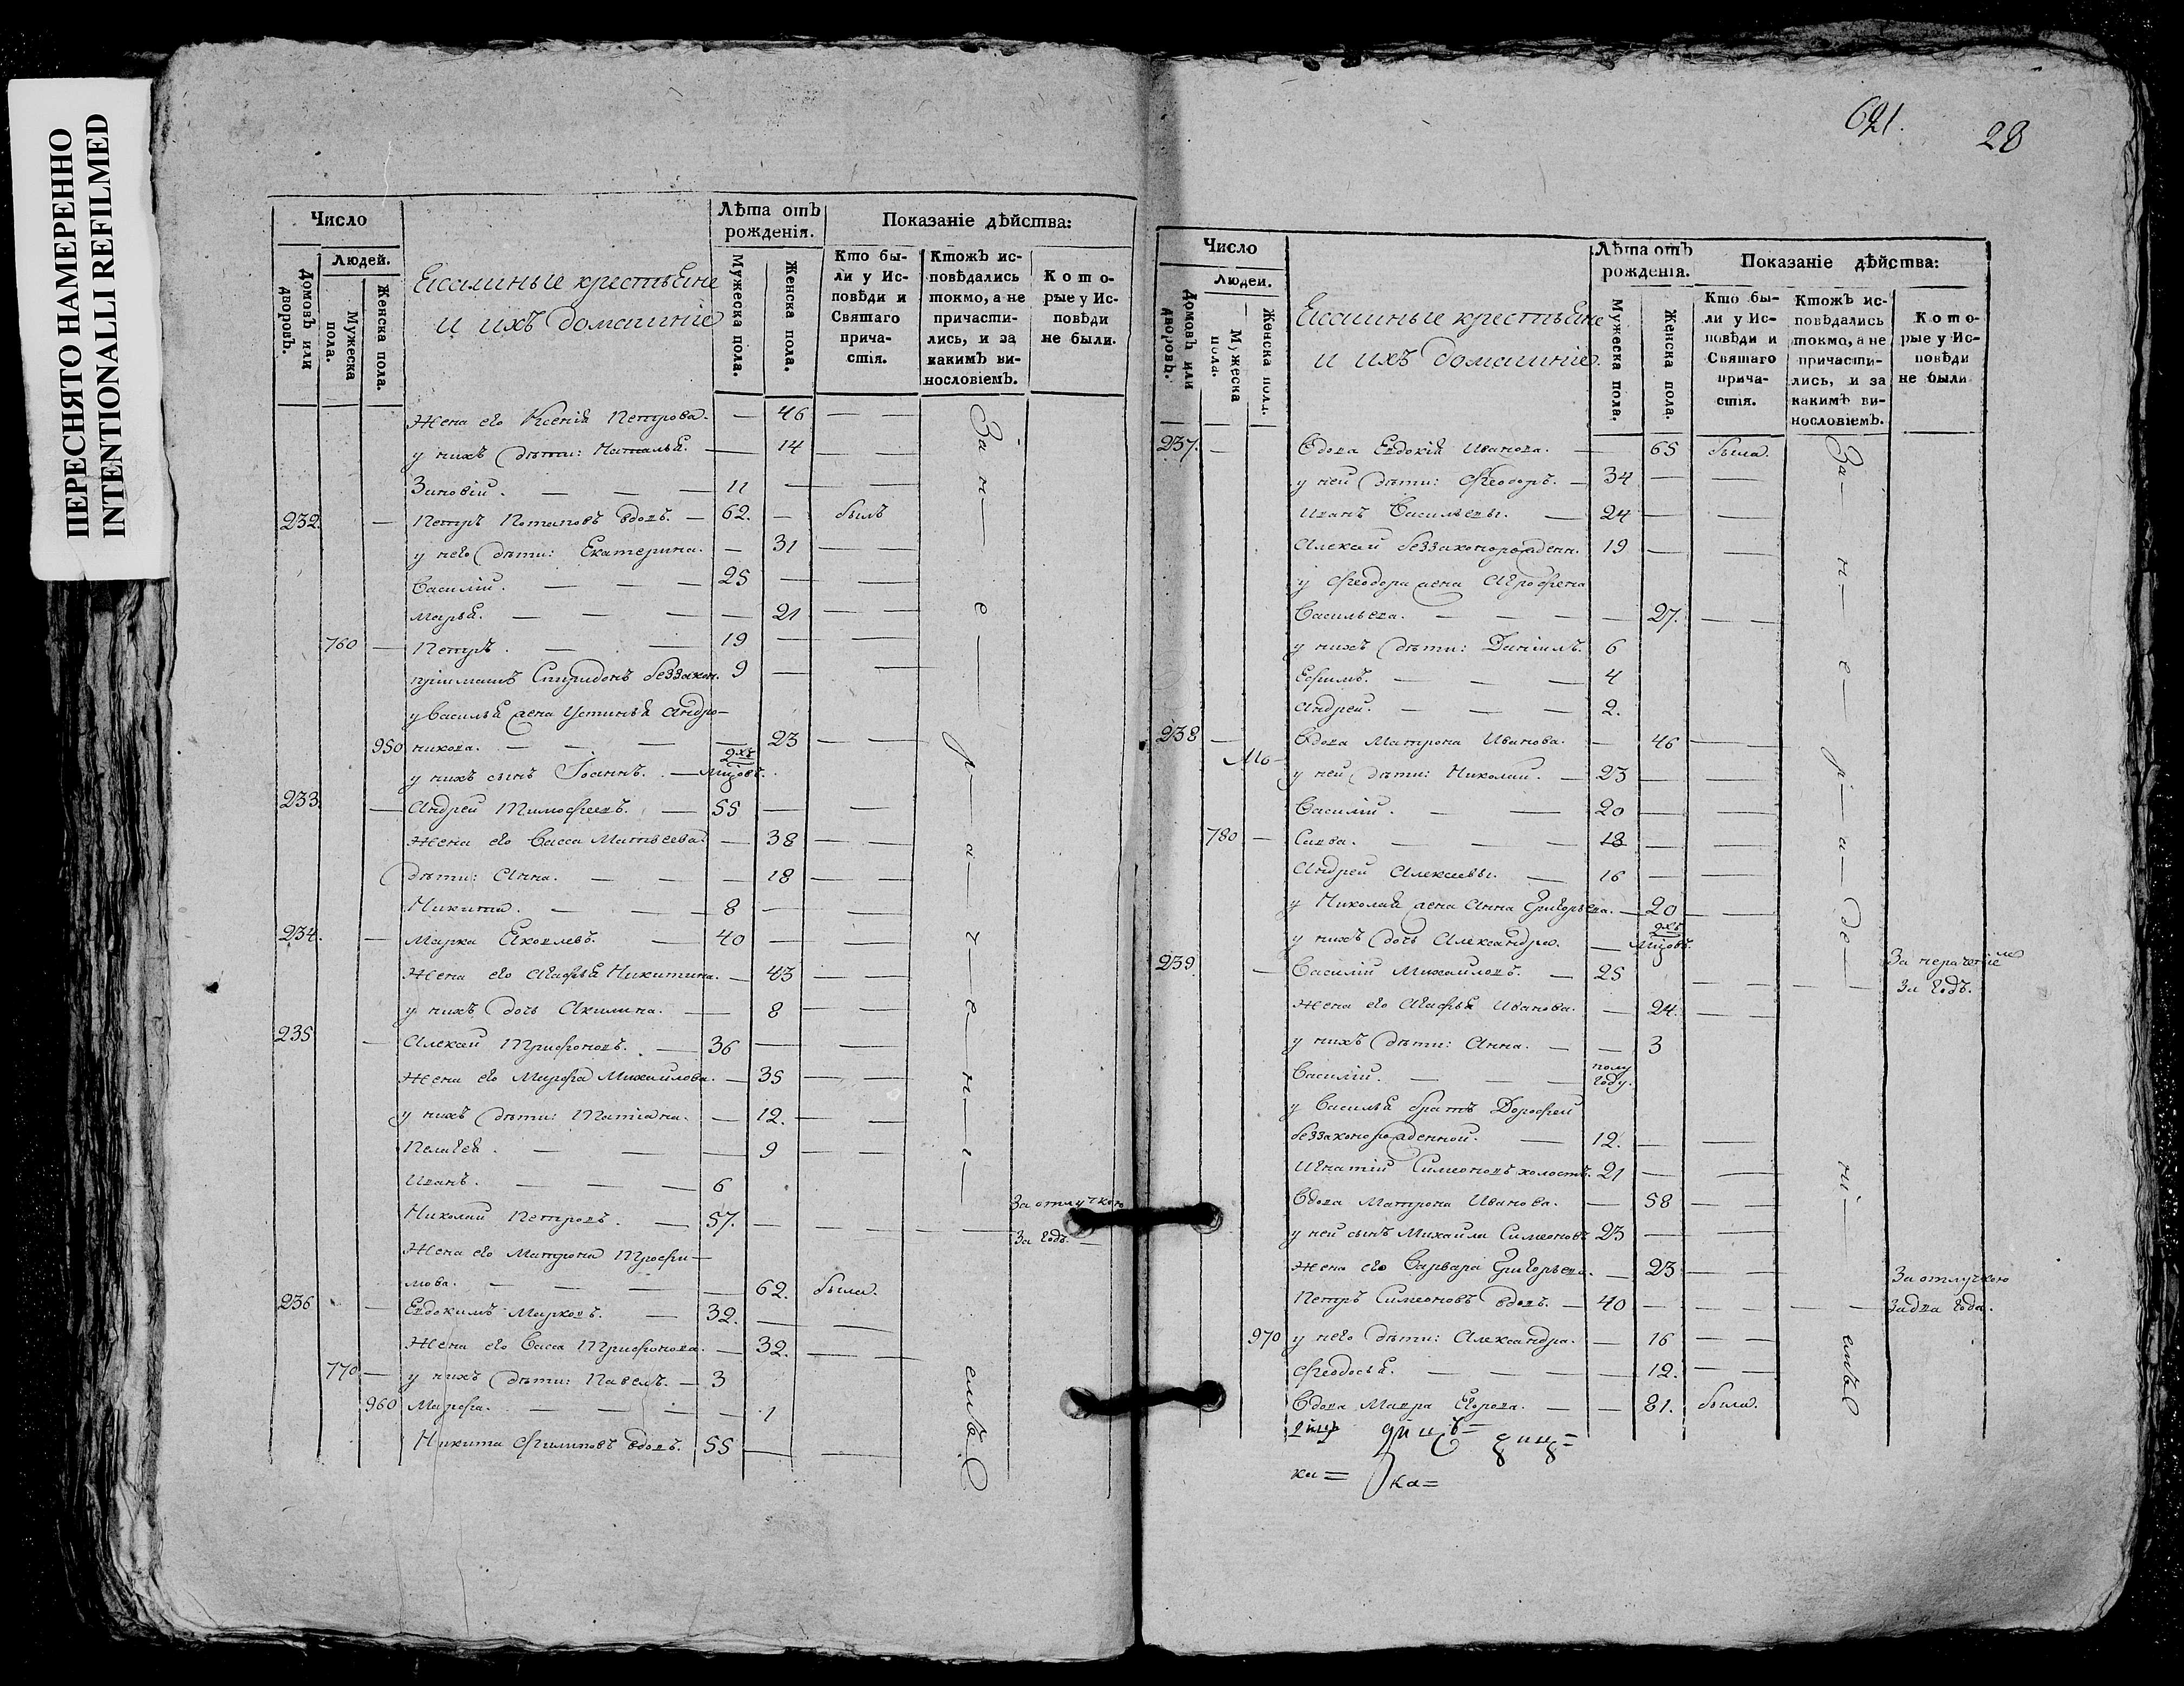 ПЕРЕСНЯТО НАМЕРЕННО
INTENTIONALLI REFILMED
Число
Людей.
Домовъ или дворовъ.
Мужеска пола.
Женска пола.
крестьяне
и ихъ домашніе
Лѣта отъ рожденія.
Мужеска пола.
Женска пола.
Показаніе дѣйства:
Кто бы-
ли у Ис-
повѣди и
Святаго
прича-
стія.
Ктожъ ис-
повѣдались
токмо, а не
причасти-
лись, и за
какимъ ви-
нословіемъ.
Кото-
рые у Ис-
повѣди
не были.
Жена его Ксенія Петрова. — 46 — —
у нихъ дѣти: Наталья. — 14 — —
Зиновій. — — — 11 — —
232. — Петръ Потаповъ вдовъ. — 62. — былъ
у него дѣти: Екатерина. — 31 — —
Василій. — — — 25 — —
Марья. — — — — 21 — —
760 — Петръ. — — 19 — —
пріимашъ Спиридонъ беззакон. 9 — —
у Василья жена Устинья Андро-
950 никова. — — — — 23 — —
у нихъ сынъ Іоаннъ. — 2хъ мцовъ.
233. — Андрей Тимофеевъ. — 55 — —
Жена его Васса Матвеева. — 38 — —
дѣти: Анна. — — — 18 — —
Никита. — — — 8 — —
234. — Марка Яковлевъ. — 40 — —
Жена его Агафья Никитина. — 43 — —
у нихъ дочь Акилина. — 8 — —
235 — Алексей Трифоновъ. — 36 — —
Жена его Марфа Михаилова. — 35 — —
у нихъ дѣти: Татіана. — 12. — —
Пелагея. — — — 9 — —
Иванъ. — — — 6
Николай Петровъ. — 57. — — — — За отлучкою
За годъ. —
Жена его Матрона Трофи-
мова. — — — — 62. была.
236 — Евдокимъ Марковъ. — 32. — —
Жена его Васса Трифонова. — 32. — —
770 — у нихъ дѣти: Павелъ. — 3
960 Марфа. — — — — 1
Никита Филиповъ вдовъ. 55 — —
За н — е — р — а — ч — е — н — і — емъ
621. 28
Число
Людей.
Домовъ или дворовъ.
Мужеска пола.
Женска пола.
крестьяне
и ихъ домашніе.
Лѣта отъ рожденія.
Мужеска пола.
Женска пола.
Показаніе дѣйства:
Кто бы-
ли у Ис-
повѣди и
Святаго
прича-
стія.
Ктожъ ис-
повѣдались
токмо, а не
причасти-
лись, и за
какимъ ви-
нословіемъ.
Кото-
рые у Ис-
повѣди
не были
237. — Вдова Евдокія Иванова. — 65 была.
у ней дѣти: Феодоръ. — 34 — —
Иванъ Васильевы. — 24 — —
Алексей беззаконорожденн. 19 — —
у Феодора жена Агрофена
Васильева. — — — — 27. — —
у нихъ дѣти: Даніилъ. 6
Ефимъ. — — — 4
Андрей. — — — 2.
238 — Вдова Матрона Иванова. — 46 — —
у ней дѣти: Николай. — 23 — —
Василій. — — 20 — —
780 — Савва. — — — 18 — —
Андрей Алексеевы. — 16 — —
у Николая жена Анна Григорьева. — 20 — —
у нихъ дочь Александра. — 2хъ мцовъ.
239. — Василій Михаиловъ. — 25 — — — — За нераченіемъ
за годъ.
Жена его Агафья Иванова. — 24. — —
у нихъ дѣти: Анна. — — 3
Василій. — — — полу году.
у Василья братъ Дорофей
беззаконорожденной. — 12. — —
Игнатій Симеоновъ холостъ. 21 — —
Вдова Матрона Иванова. — 58 — —
у ней сынъ Михаила Симеоновъ 23 — —
Жена его Варвара Григорьева. — 23 — —
Петръ Симеоновъ вдовъ. — 40 — — — — За отлучкою
за два года.
970 у него дѣти: Александра. — 16 — —
Феодосья. — — — — 12. — —
Вдова Мавра Егорова. — — 81. была.
За — н — е — р — а — де — ні — емъ
ка= ка=